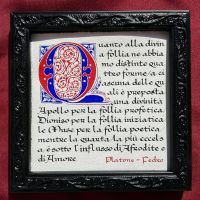 Quanto alla divin
a follia ne abbia
mo distinte qua
ttro forme, a ci
ascuna delle qu
ali è preposta
una divinità
Apollo per la follia profetica
Dioniso per la follia iniziatic
a le Muse per la follia poetica
mentre la quarta, la più eccels
a, è sotto l'influsso di Afrodite e
di Amore
Platone - Fedro